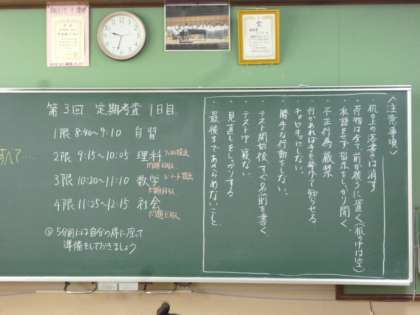 第3回 定期考査 1日目
1限 8:40〜9:10 自習
2限 9:15〜10:05 理科
問題回収
3限 10:20〜11:10 数学
問題回収
4限 11:25〜12:15 社会
問題回収
◎5分前には自分の席に座って
準備をしておきましょう
〈注意事項〉
・机の上の落書きは消す
・荷物は全て前か後ろに置く(机の中は空)
・不正行為 厳禁
・何かあれば手を挙げて知らせる。
勝手な行動をしない。
・テスト開始後、すぐ名前を書く
・テスト中、寝ない
・見直しをしっかりする
・最後まであきらめないこと